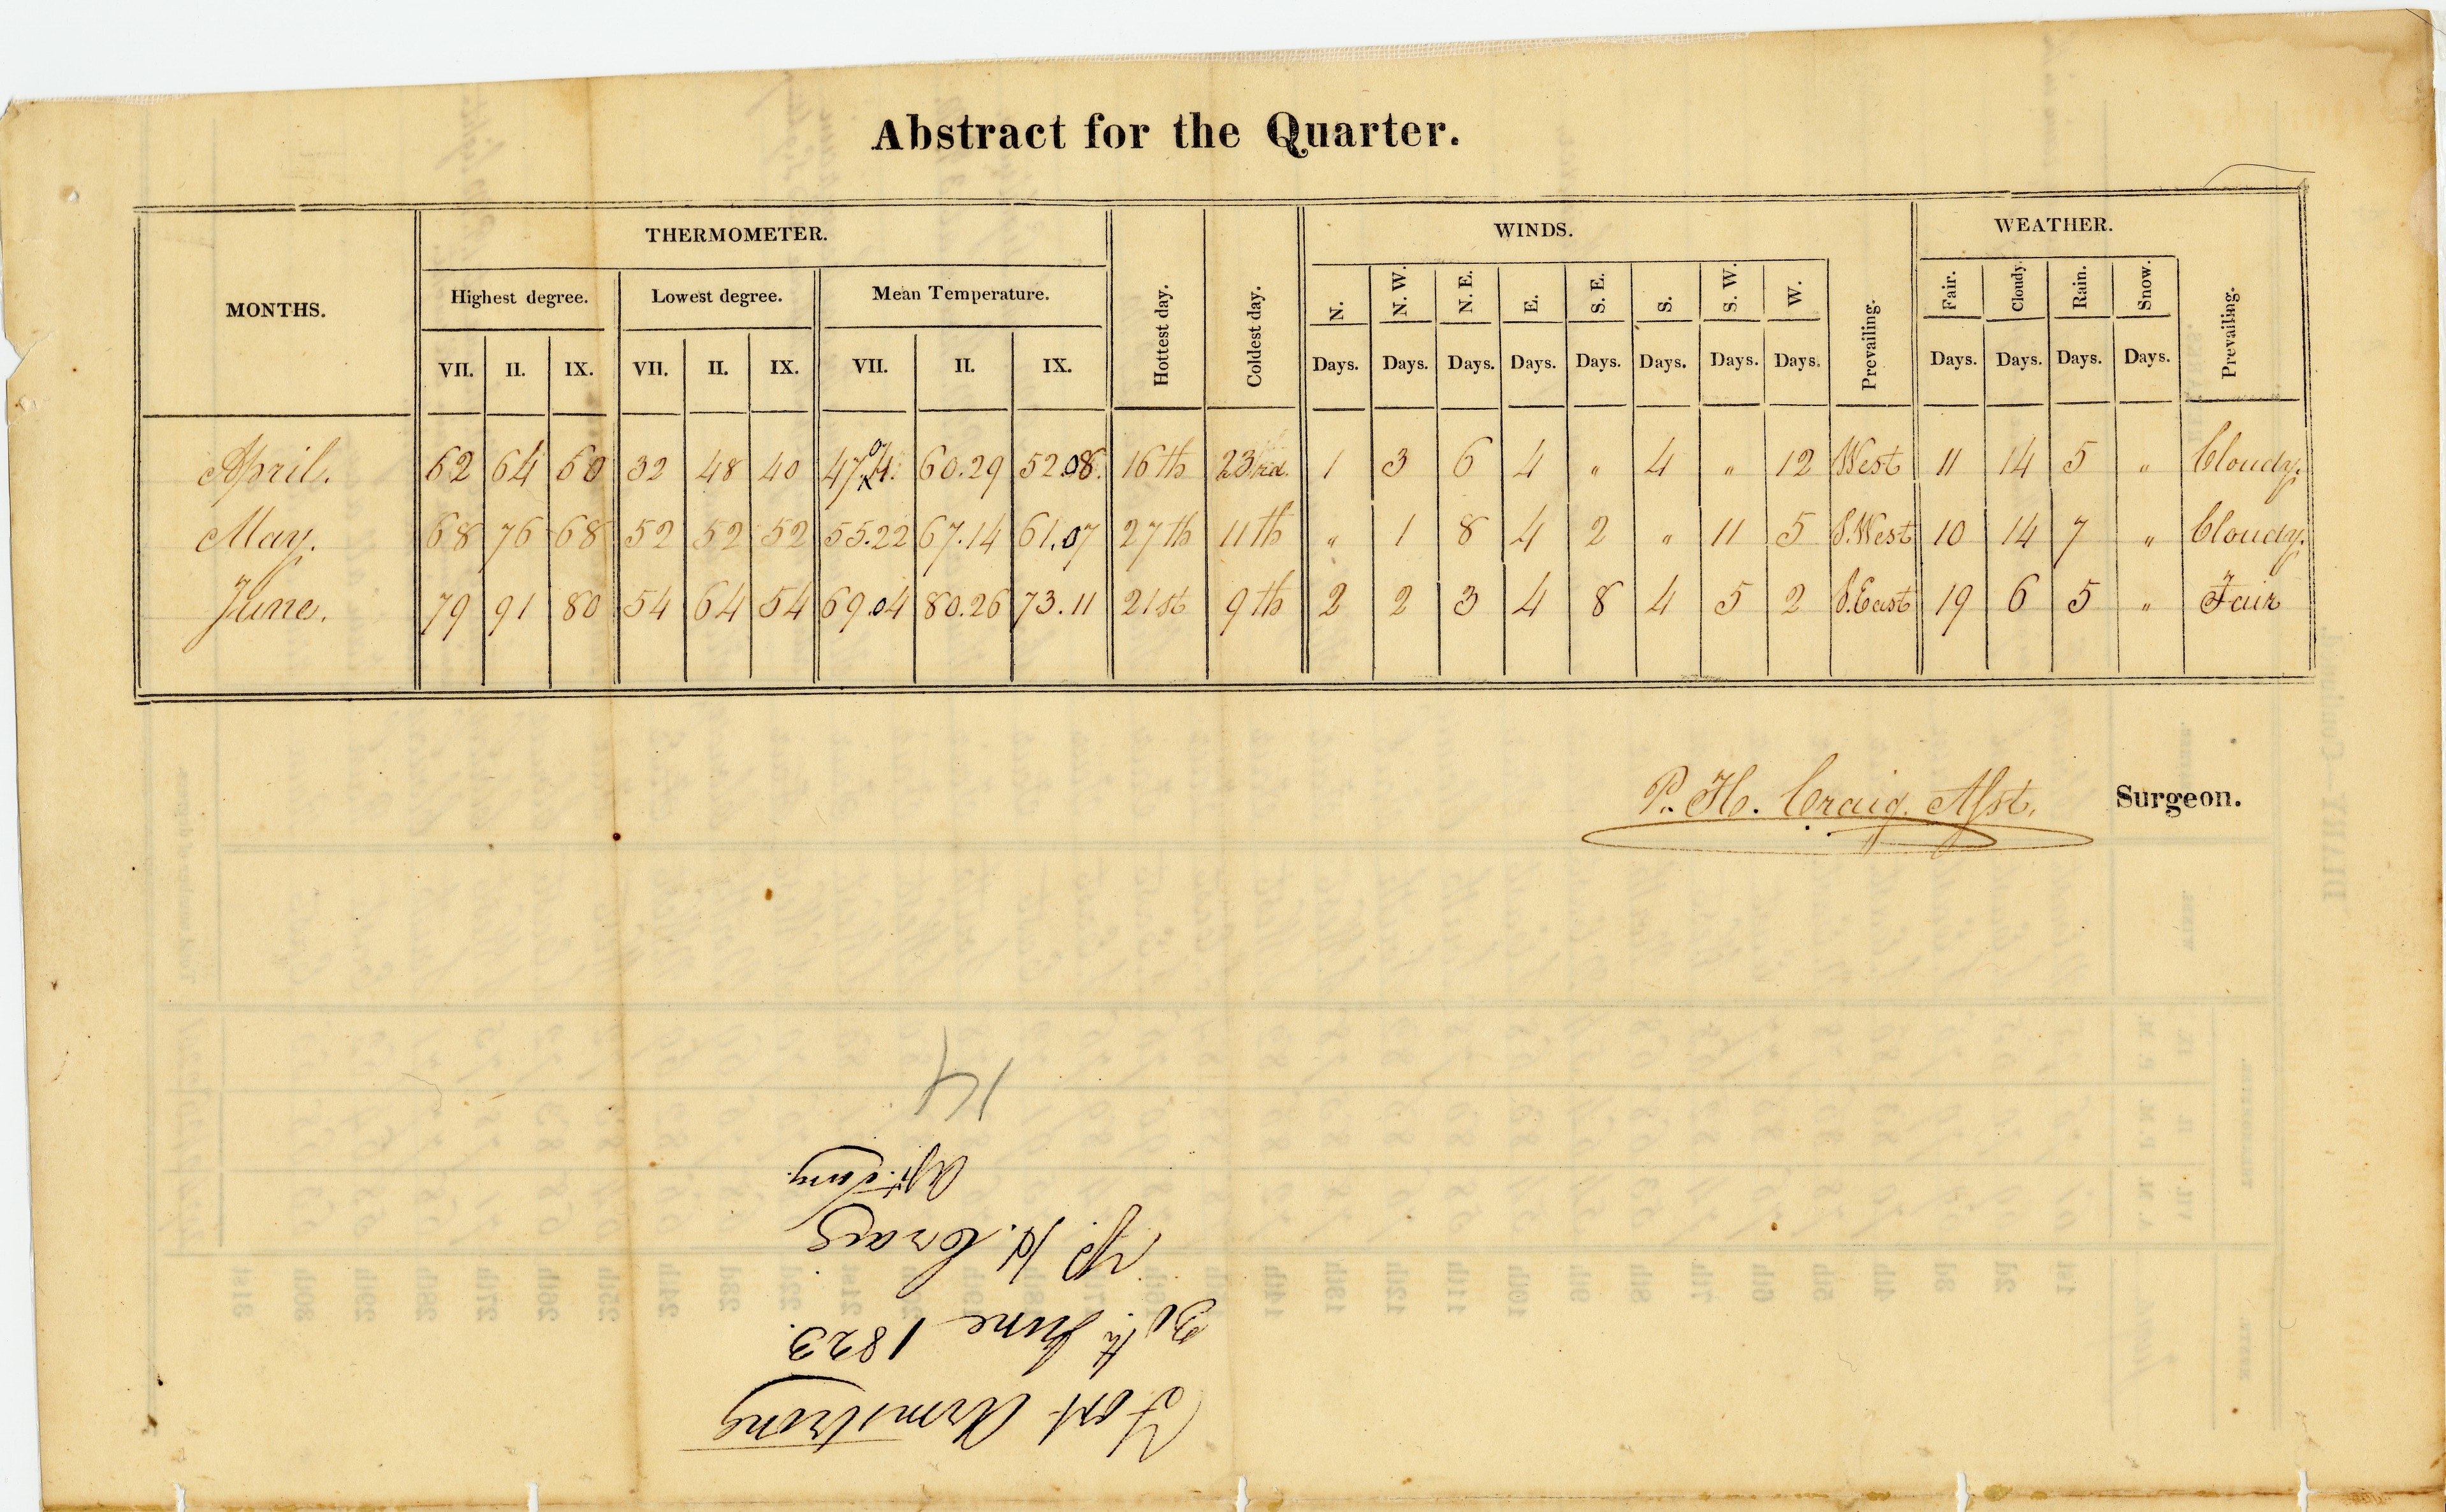 Abstract for the Quarter.
MONTHS. THERMOMETER. Hottest day. Coldest day. WINDS. WEATHER.
Highest degree. Lowest degree. Mean Temperature. N. N. W. N. E. E. S. E. S. S. W. W. Prevailing. Fair. Cloudy. Rain. Snow. Prevailing.
VII. II. IX. VII. II. IX. VII. II. IX. Days. Days. Days. Days. Days. Days. Days. Days. Days. Days. Days. Days.
April. 62 64 60 32 48 40 47.04. 60.29 52.08. 16th 23rd. 1 3 6 4 " 4 " 12 West 11 14 5 " Cloudy.
May. 68 76 68 52 52 52 55.22 67.14 61.07 27th 11th " 1 8 4 2 " 11 5 S.West 10 14 7 " Cloudy.
June. 79 91 80 54 64 54 69.04 80.26 73.11 21st 9th 2 2 3 4 8 4 5 2 S.East 19 6 5 " Fair
P. H. Craig. Asst. Surgeon.
Fort Armstrong
30th June 1823.
P. H. Craig
Asst. Surg.
14